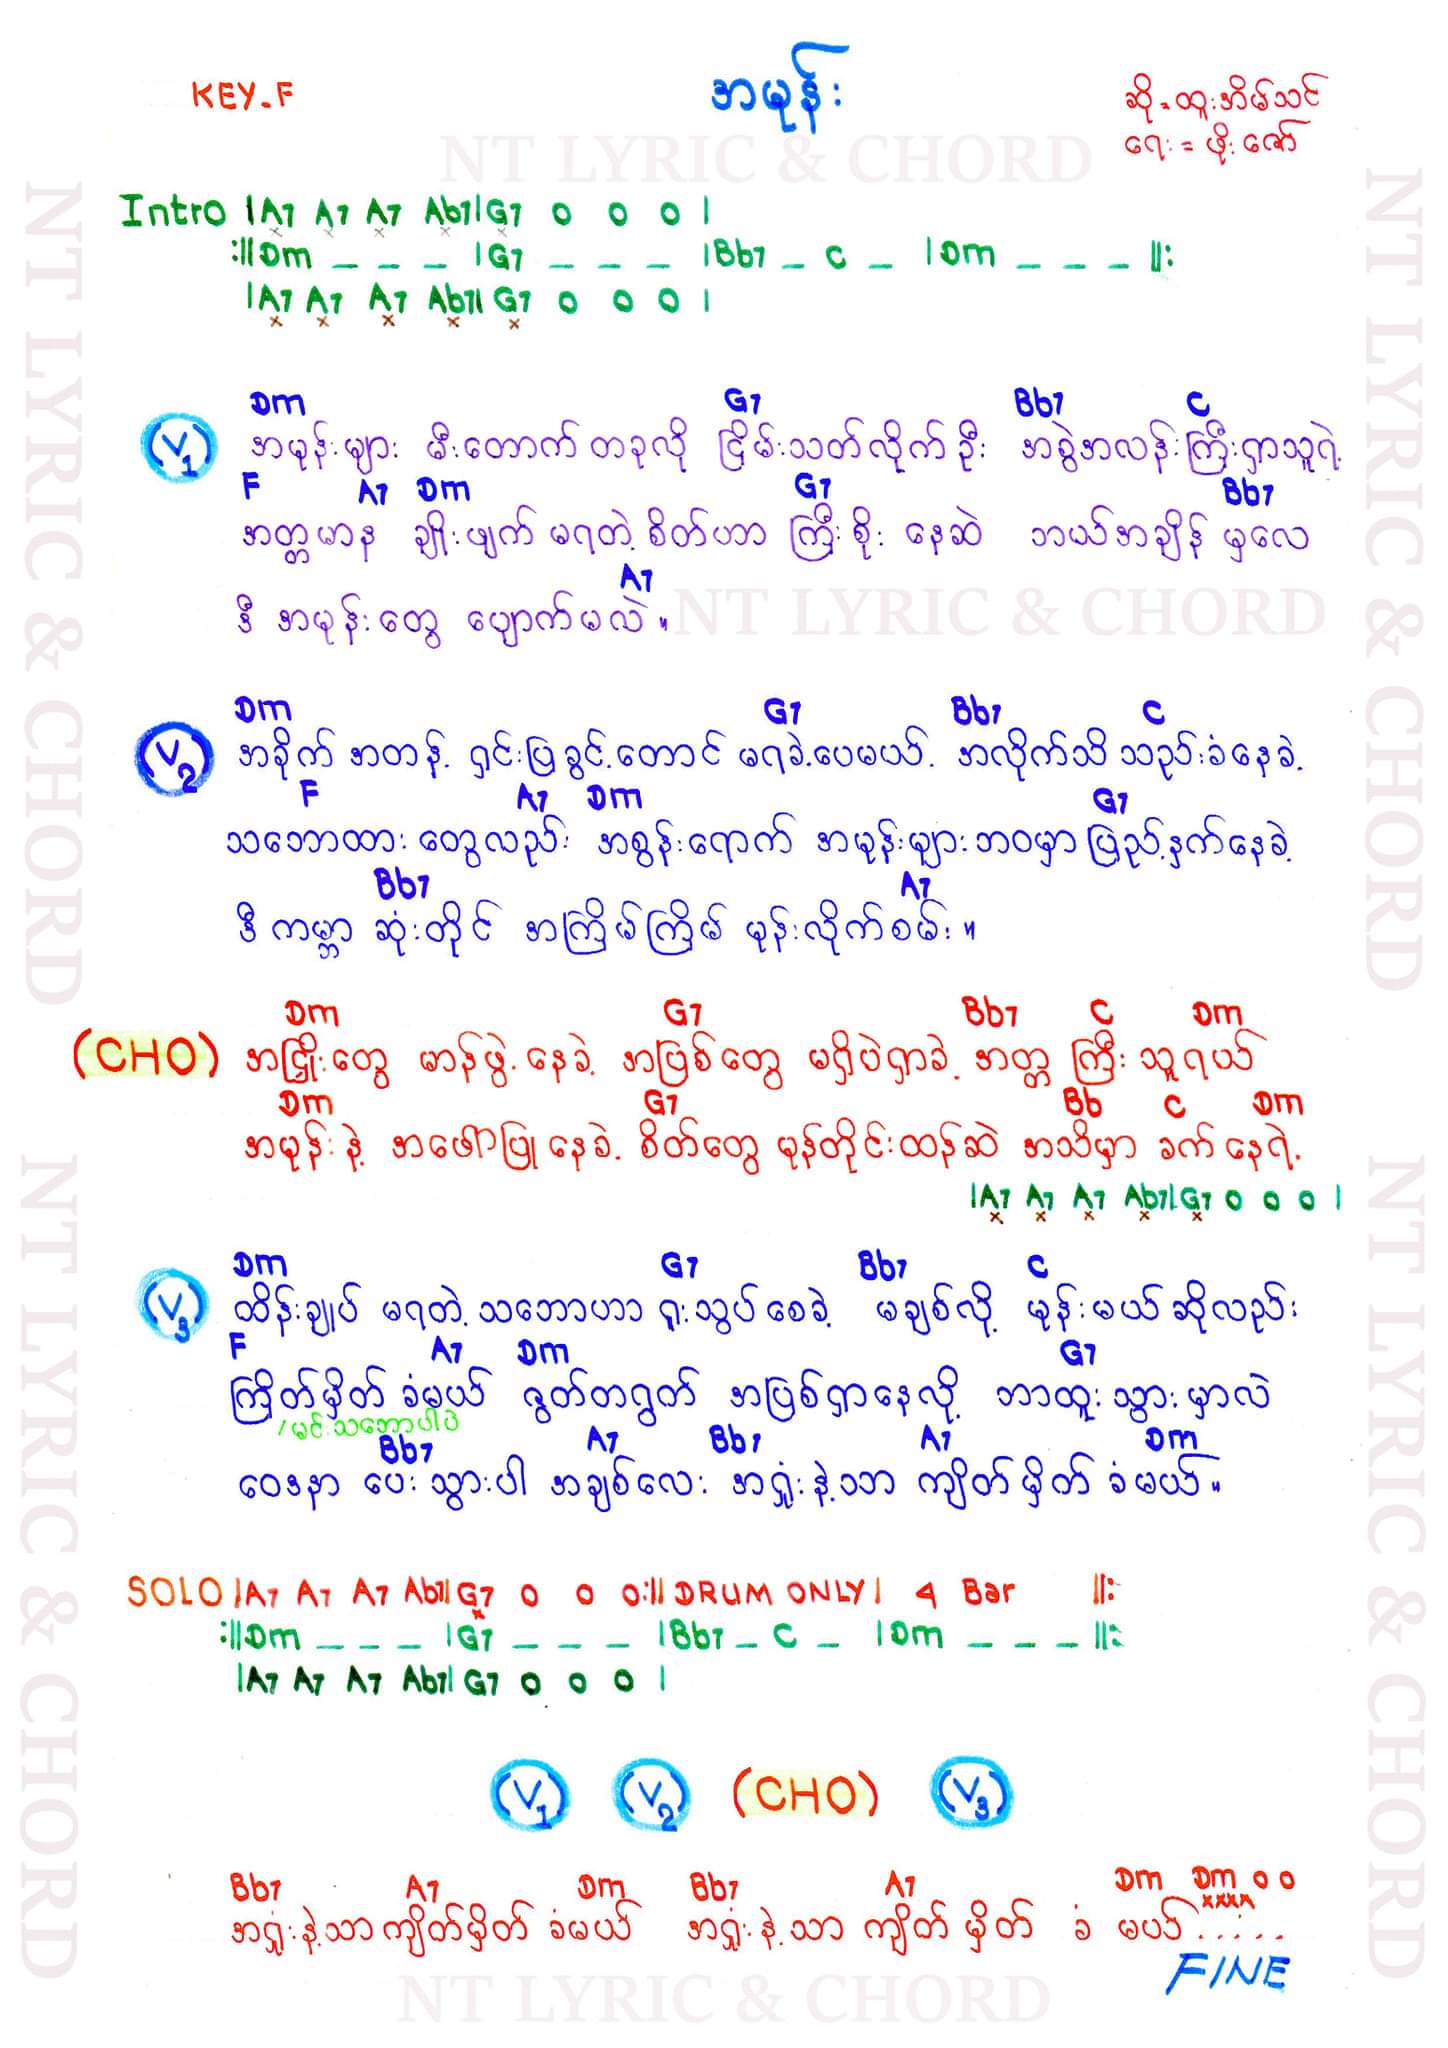 KEY-F
အမုန်း
ဆို = ထူးအိမ်သင်
ရေး = ဖိုးဇော်
NT LYRIC & CHORD
Intro |A7 A7 A7 Ab7|G7 0 0 0 |
:||Dm _ _ _ |G7 _ _ _ |Bb7 _ C _ |Dm _ _ _ ||:
|A7 A7 A7 Ab7| G7 0 0 0 |
Dm G7 Bb7 C
(V1) အမုန်းများ မီးတောက်တခုလို ငြိမ်းသတ်လိုက်ဦး အစွဲအလန်းကြီးရှာသူရဲ့
F A7 Dm G7 Bb7
အတ္တမာန ချိုးဖျက်မရတဲ့ စိတ်ဟာ ကြီးစိုး နေဆဲ ဘယ်အချိန် မှလေ
A7
ဒီ အမုန်းတွေ ပျောက်မလဲ။
NT LYRIC & CHORD
Dm G7 Bb7 C
(V2) အခိုက်အတန့် ရှင်းပြခွင့်တောင် မရခဲ့ပေမယ့် အလိုက်သိ သည်းခံနေခဲ့
F A7 Dm G7
သဘောထား တွေလည်း အစွန်းရောက် အမုန်းများဘဝမှာ ပြည့်နှက်နေခဲ့
Bb7 A7
ဒီကမ္ဘာ ဆုံးတိုင် အကြိမ်ကြိမ် မုန်းလိုက်စမ်း။
Dm G7 Bb7 C Dm
(CHO) အငြိုးတွေ မာန်ဖွဲ့နေခဲ့ အပြစ်တွေ မရှိပဲရှာခဲ့ အတ္တ ကြီး သူရယ်
Dm G7 Bb C Dm
အမုန်းနဲ့ အဖော်ပြုနေခဲ့ စိတ်တွေ မုန်တိုင်းထန်ဆဲ အသိမှာ ခက်နေရဲ့
|A7 A7 A7 Ab7|G7 0 0 0 |
Dm G7 Bb7 C
(V3) ထိန်းချုပ် မရတဲ့ သဘောဟာ ရူးသွပ်စေခဲ့ မချစ်လို့ မုန်းမယ်ဆိုလည်း
F A7 Dm G7
ကြိတ်မှိတ်ခံမယ် ဇွတ်တရွတ် အပြစ်ရှာနေလို့ ဘာထူးသွားမှာလဲ
/မင်းသဘောပါပဲ
Bb7 A7 Bb7 A7 Dm
ဝေဒနာ ပေးသွားပါ အချစ်လေး အရှုံးနဲ့သာ ကျိတ်မှိတ် ခံမယ်။
SOLO |A7 A7 A7 Ab7||G7 0 0 0:|| DRUM ONLY| 4 Bar ||:
:||Dm _ _ _ |G7 _ _ _ |Bb7 _ C _ |Dm _ _ _ ||:
|A7 A7 A7 Ab7| G7 0 0 0 |
(V1) (V2) (CHO) (V3)
Bb7 A7 Dm Bb7 A7 Dm Dm 0 0
အရှုံးနဲ့သာ ကျိတ်မှိတ် ခံမယ် အရှုံးနဲ့သာ ကျိတ်မှိတ် ခံ မယ်.....
FINE
NT LYRIC & CHORD
NT LYRIC & CHORD
NT LYRIC & CHORD
NT LYRIC & CHORD
NT LYRIC & CHORD